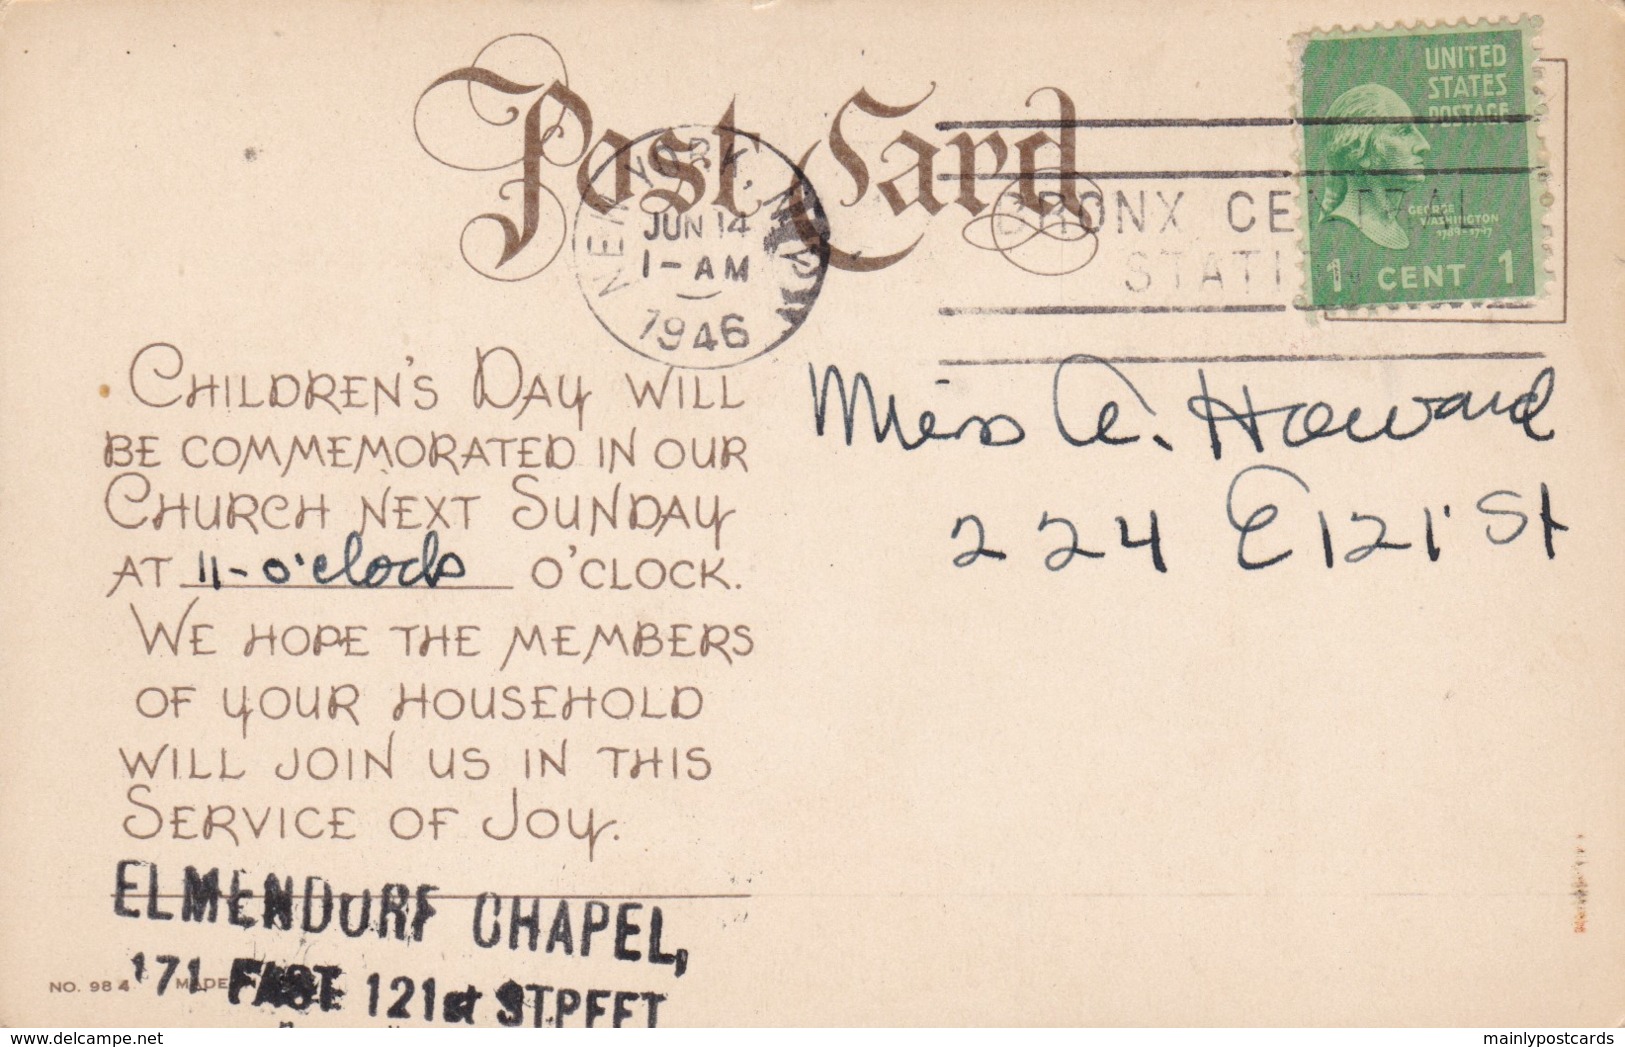 Post Card
UNITED
STATES
POSTAGE
GEORGE
WASHINGTON
1789-1797
1 CENT 1
NEW YORK, N.Y.
JUN 14
1-AM
1946
BRONX CENTRAL
STATION
CHILDREN'S DAY WILL
BE COMMEMORATED IN OUR
CHURCH NEXT SUNDAY
AT 11-o'clock O'CLOCK.
WE HOPE THE MEMBERS
OF YOUR HOUSEHOLD
WILL JOIN US IN THIS
SERVICE OF JOY.
Miss A. Howard
224 E 121 St
ELMENDORF CHAPEL,
171 EAST 121st STREET
NO. 984 MADE
mainlypostcards
delcampe.net